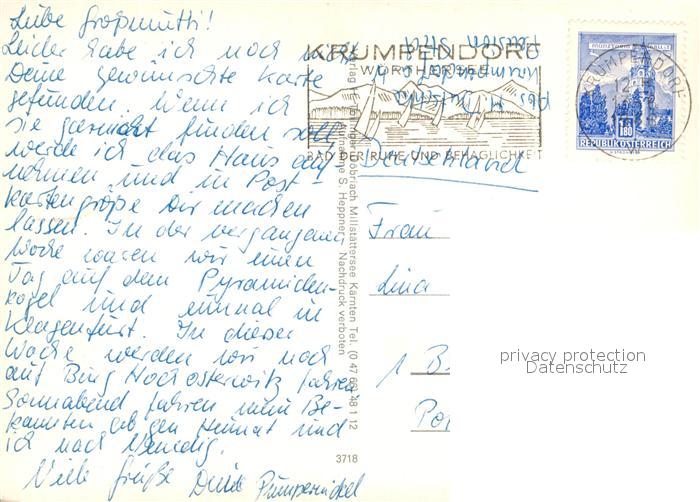 Liebe Großmutti!
Leider habe ich noch nicht
Deine gewünschte Karte
gefunden. Wenn ich
sie finden soll
werde ich das Haus auf-
nehmen und in Post-
kartengröße Dir machen
lassen. In der vergangenen
Woche waren wir einen
Tag auf dem Pyramiden-
kogel und einmal in
Klagenfurt. In dieser
Woche werden wir noch
auf Burg Hochosterwitz fahren
Sonnabend fahren meine Be-
kannten gen Heimat und
ich nach Venedig.
Viele Grüße Deine Pumpernickel
KRUMPENDORF
WÖRTHERSEE
BAD DER RUHE UND BEHAGLICHKEIT
KRUMPENDORF
1.80
REPUBLIK ÖSTERREICH
Pension
Krumpendorf
Döbriach Millstättersee Kärnten Tel. (0 47 68) 48 1 12
Aufnahme S. Heppner, Nachdruck verboten
Deutschland
Frau
Lina
1 B
Po
3718
privacy protection
Datenschutz